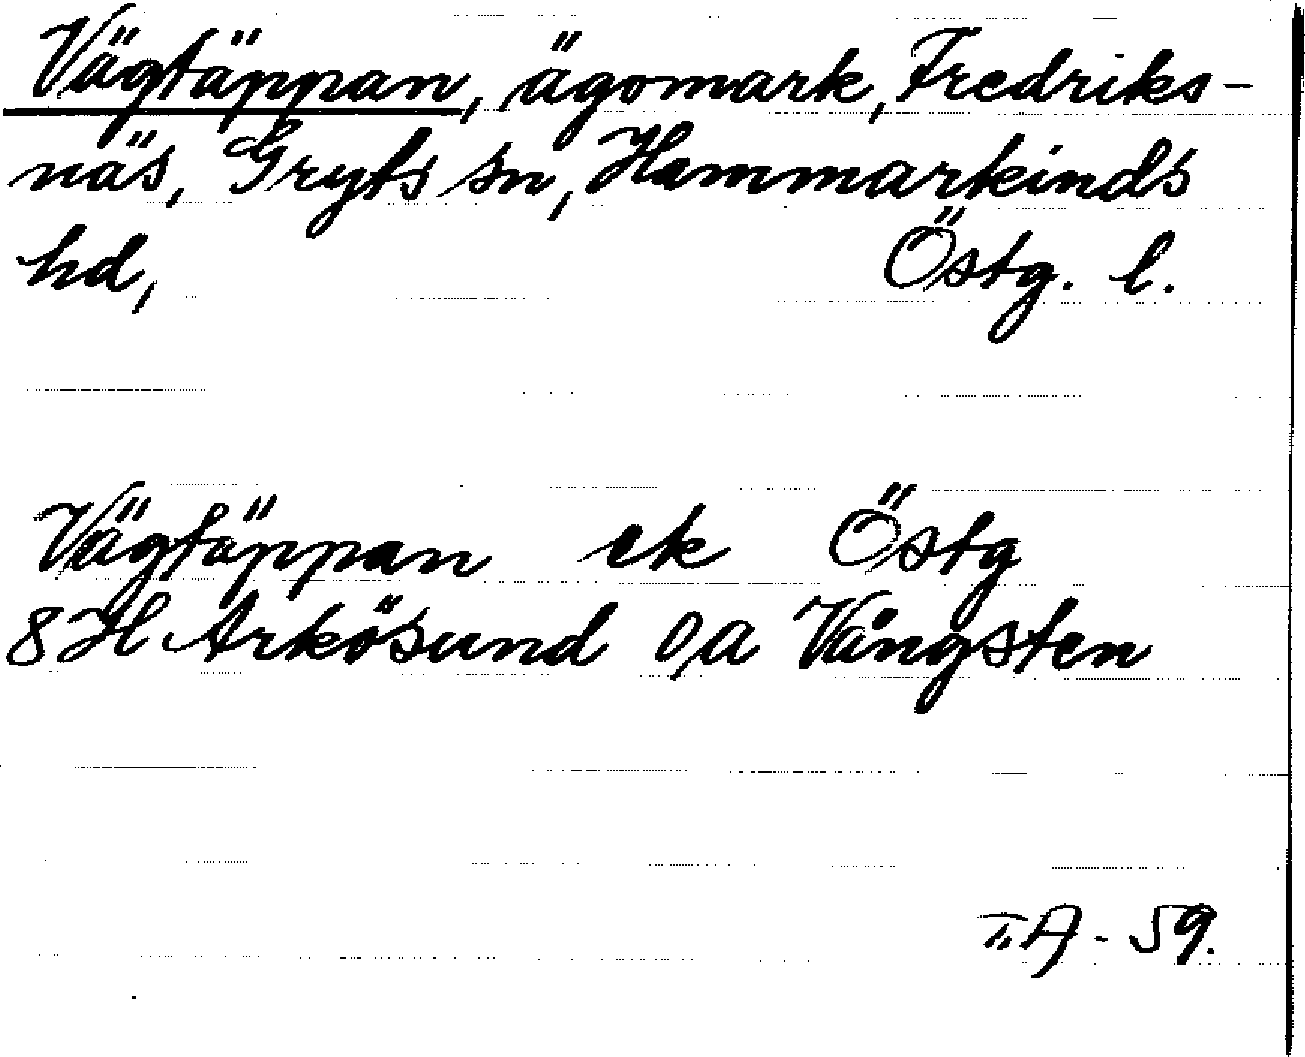 Vägtäppan, ägomark, Fredriks-
näs, Gryts sn, Hammarkinds
hd, Östg. l.
Vägtäppan ek Östg
8H Arkösund 0,a Vångsten
TA - 59.